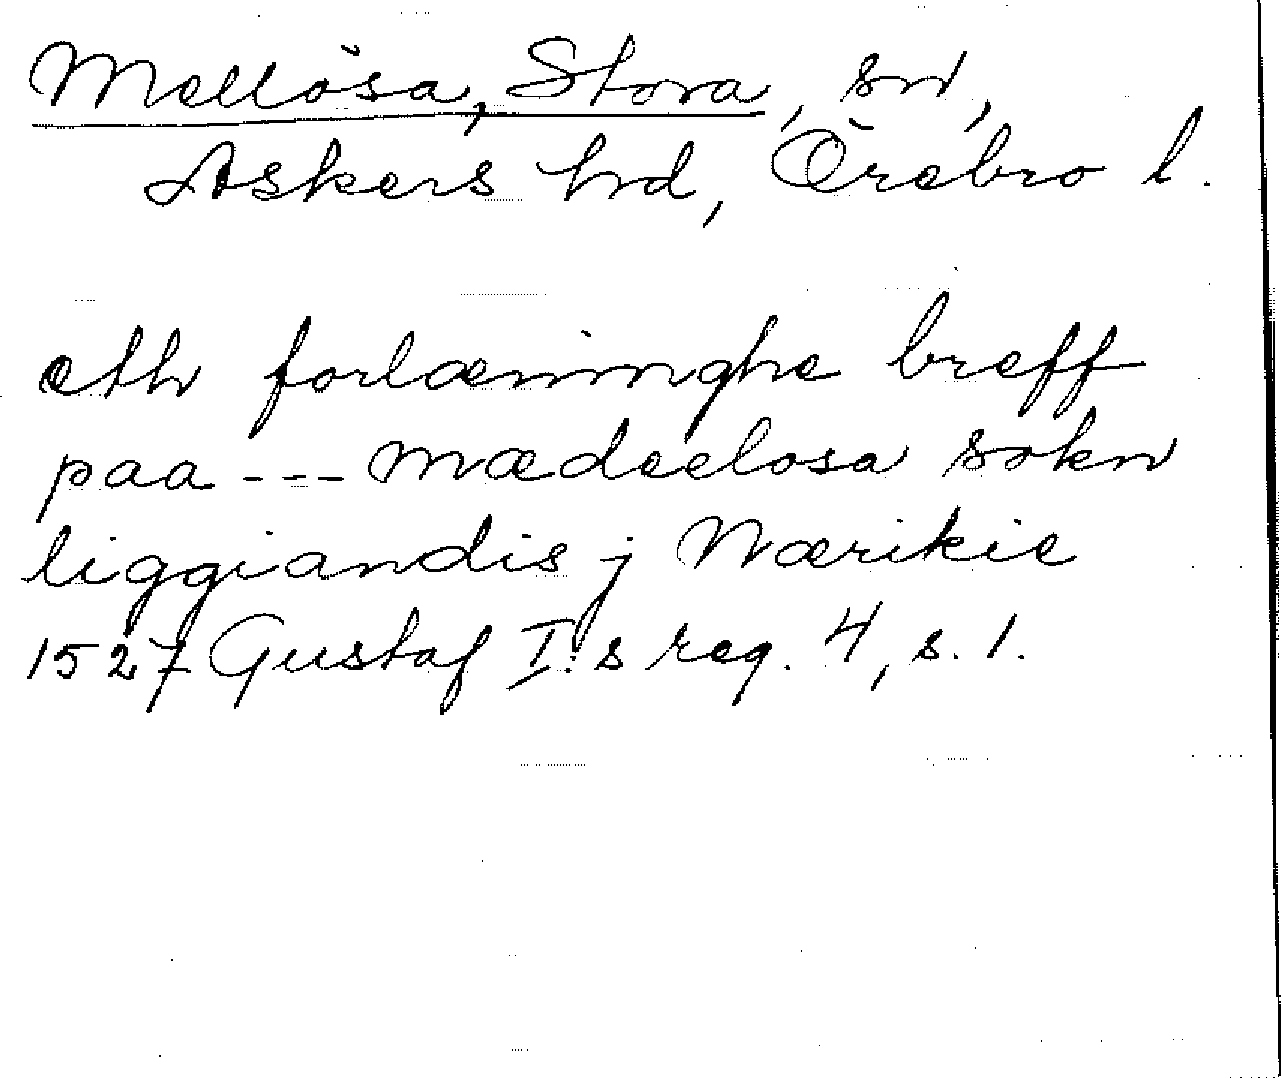 Mellösa, Stora, sn,
Askers hd, Örebro l.
eth forlæninghe breff
paa --- mædeelosa sokn
liggiandis j Nærikie
1527 Gustaf I:s reg. 4, s. 1.